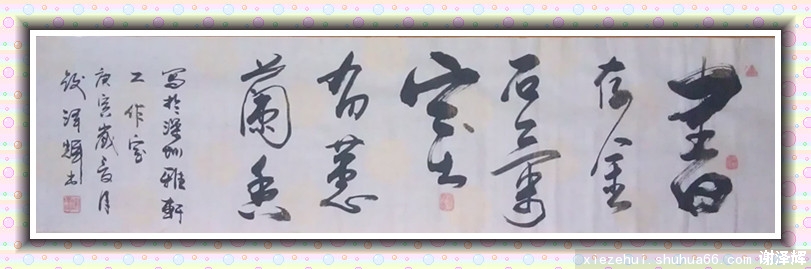 書
存金
石氣
室
有蕙
蘭香
寫於深圳雅軒
工作室
庚寅歲夏月
謝澤輝書
xiezehui.shuhua66.com 谢泽辉